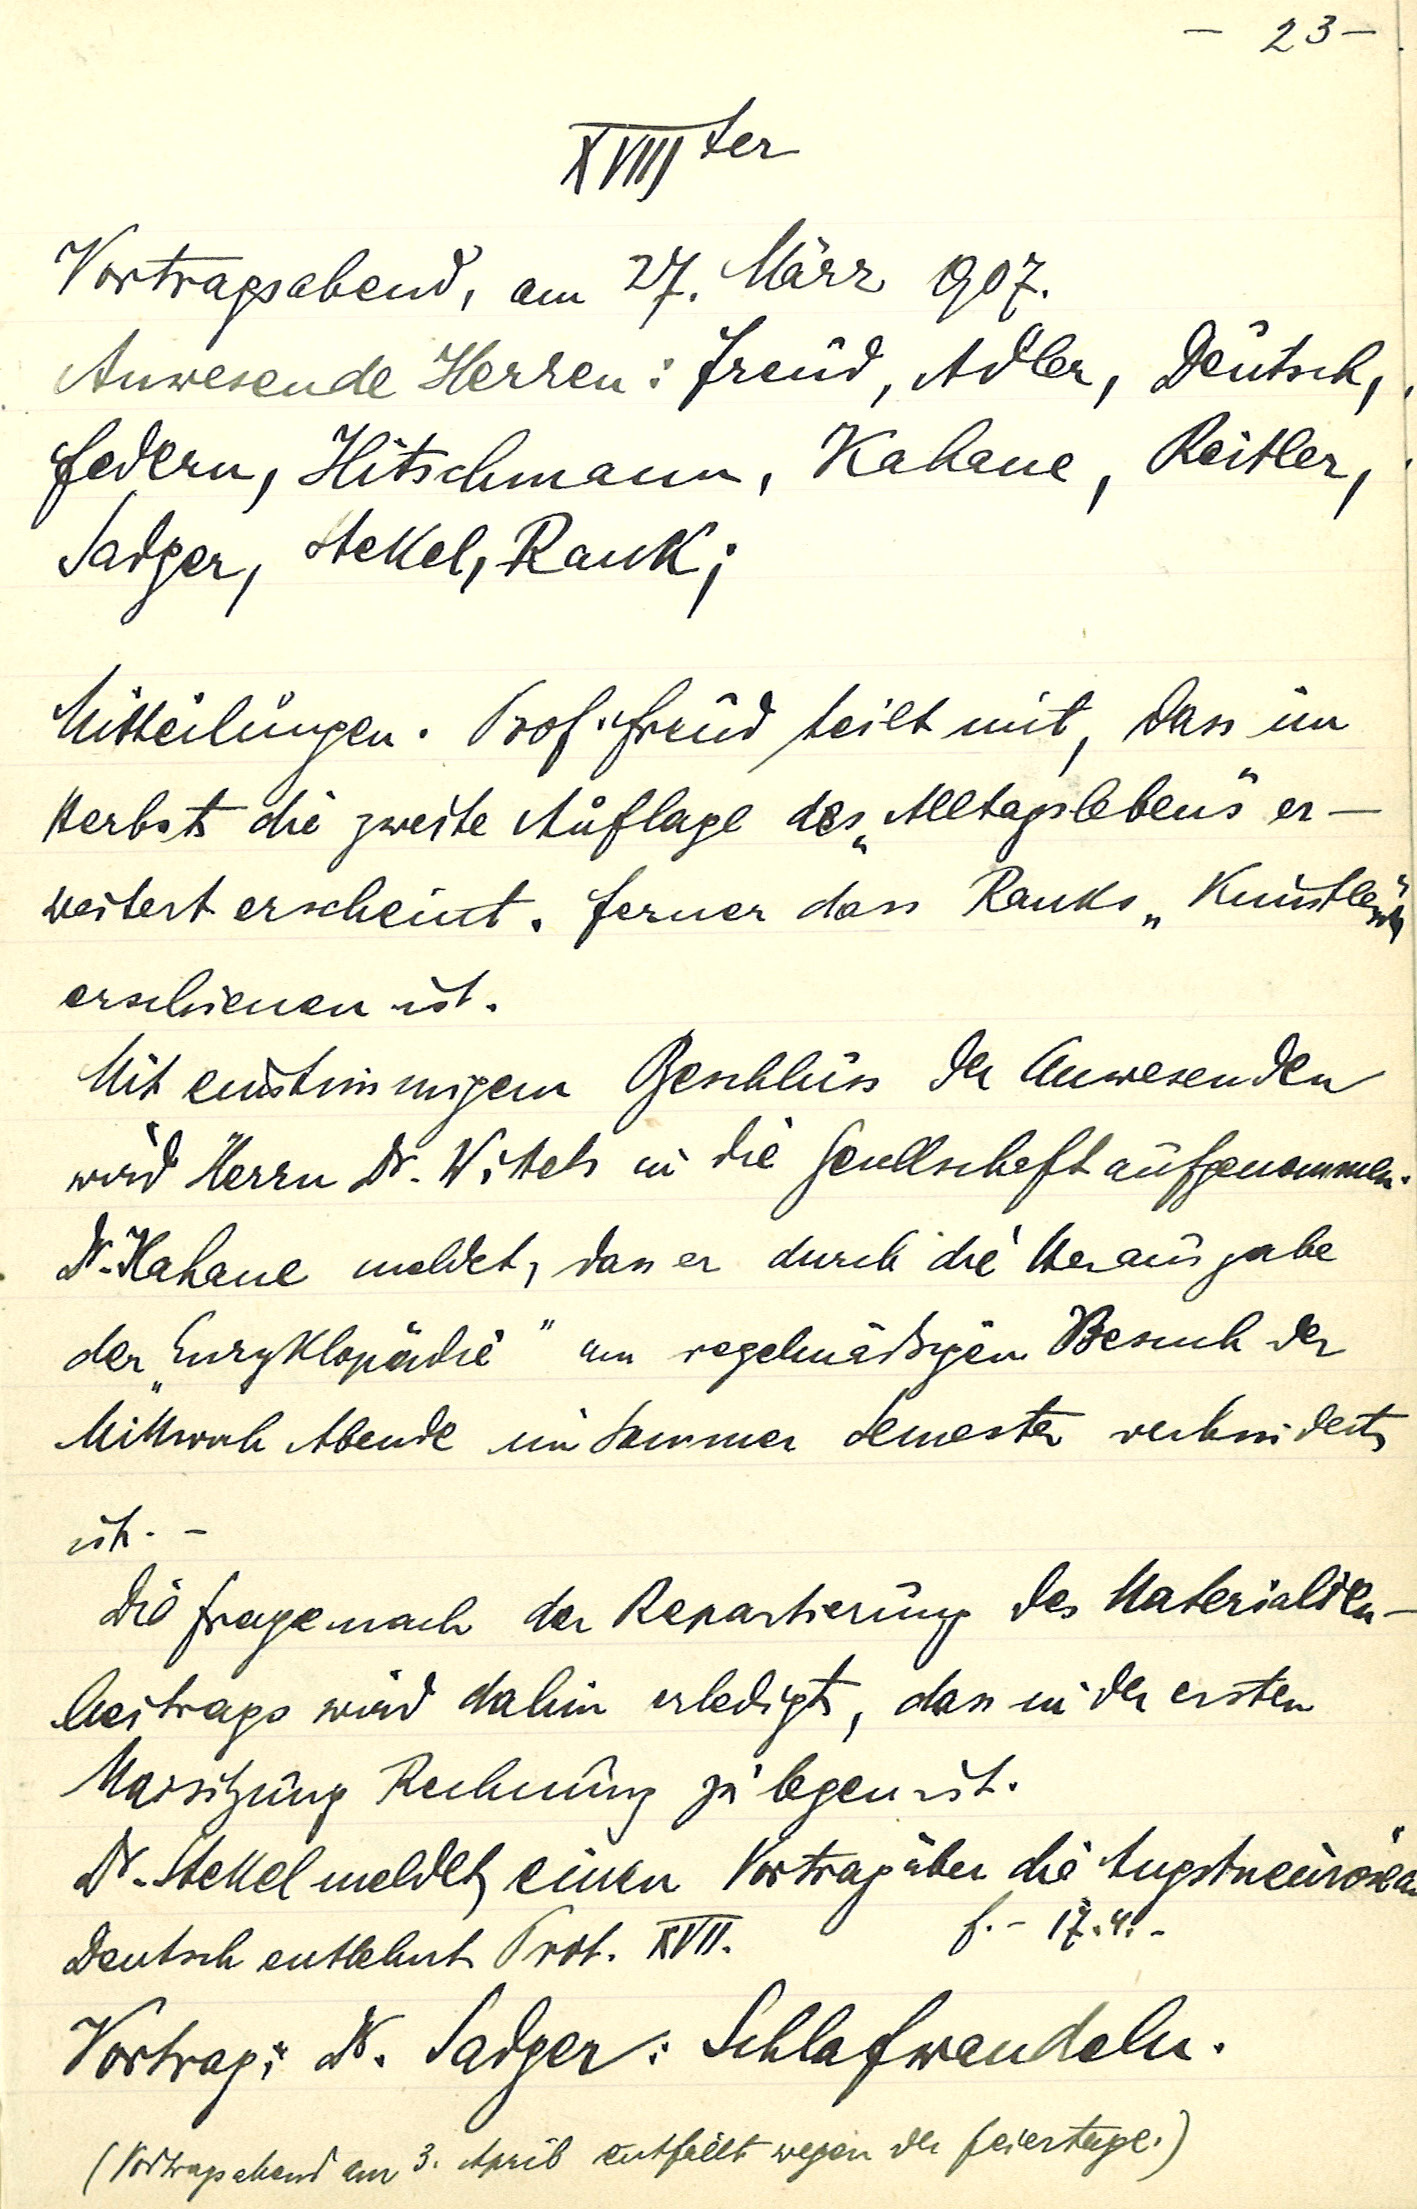 - 23 -
XVIIIter
Vortragsabend, am 27. März 1907.
Anwesende Herren: Freud, Adler, Deutsch,
Federn, Hitschmann, Kahane, Reitler,
Sadger, Stekel, Rank;
Mitteilungen. Prof. Freud teilt mit, dass im
Herbst die zweite Auflage des „Alltagslebens" er-
weitert erscheint. Ferner dass Ranks „Künstler"
erschienen ist.
Mit einstimmigem Beschluss der Anwesenden
wird Herrn Dr. Wittels in die Gesellschaft aufgenommen.
Dr. Kahane meldet, dass er durch die Herausgabe
der „Enzyklopädie" am regelmäßigen Besuch der
Mittwoch Abende im Sommer Semester verhindert
ist. -
Die Frage nach der Repartierung des
beitrags wird dahin erledigt, dass in der ersten
Maisitzung Rechnung zu legen ist.
Dr. Stekel meldet einen Vortrag über die Angstneurose an
f. - 17. 4. -
Deutsch entlehnt Prot. XVII.
Vortrag: Dr. Sadger: Schlafwandeln.
(Vortragsabend am 3. April entfällt wegen der Feiertage.)